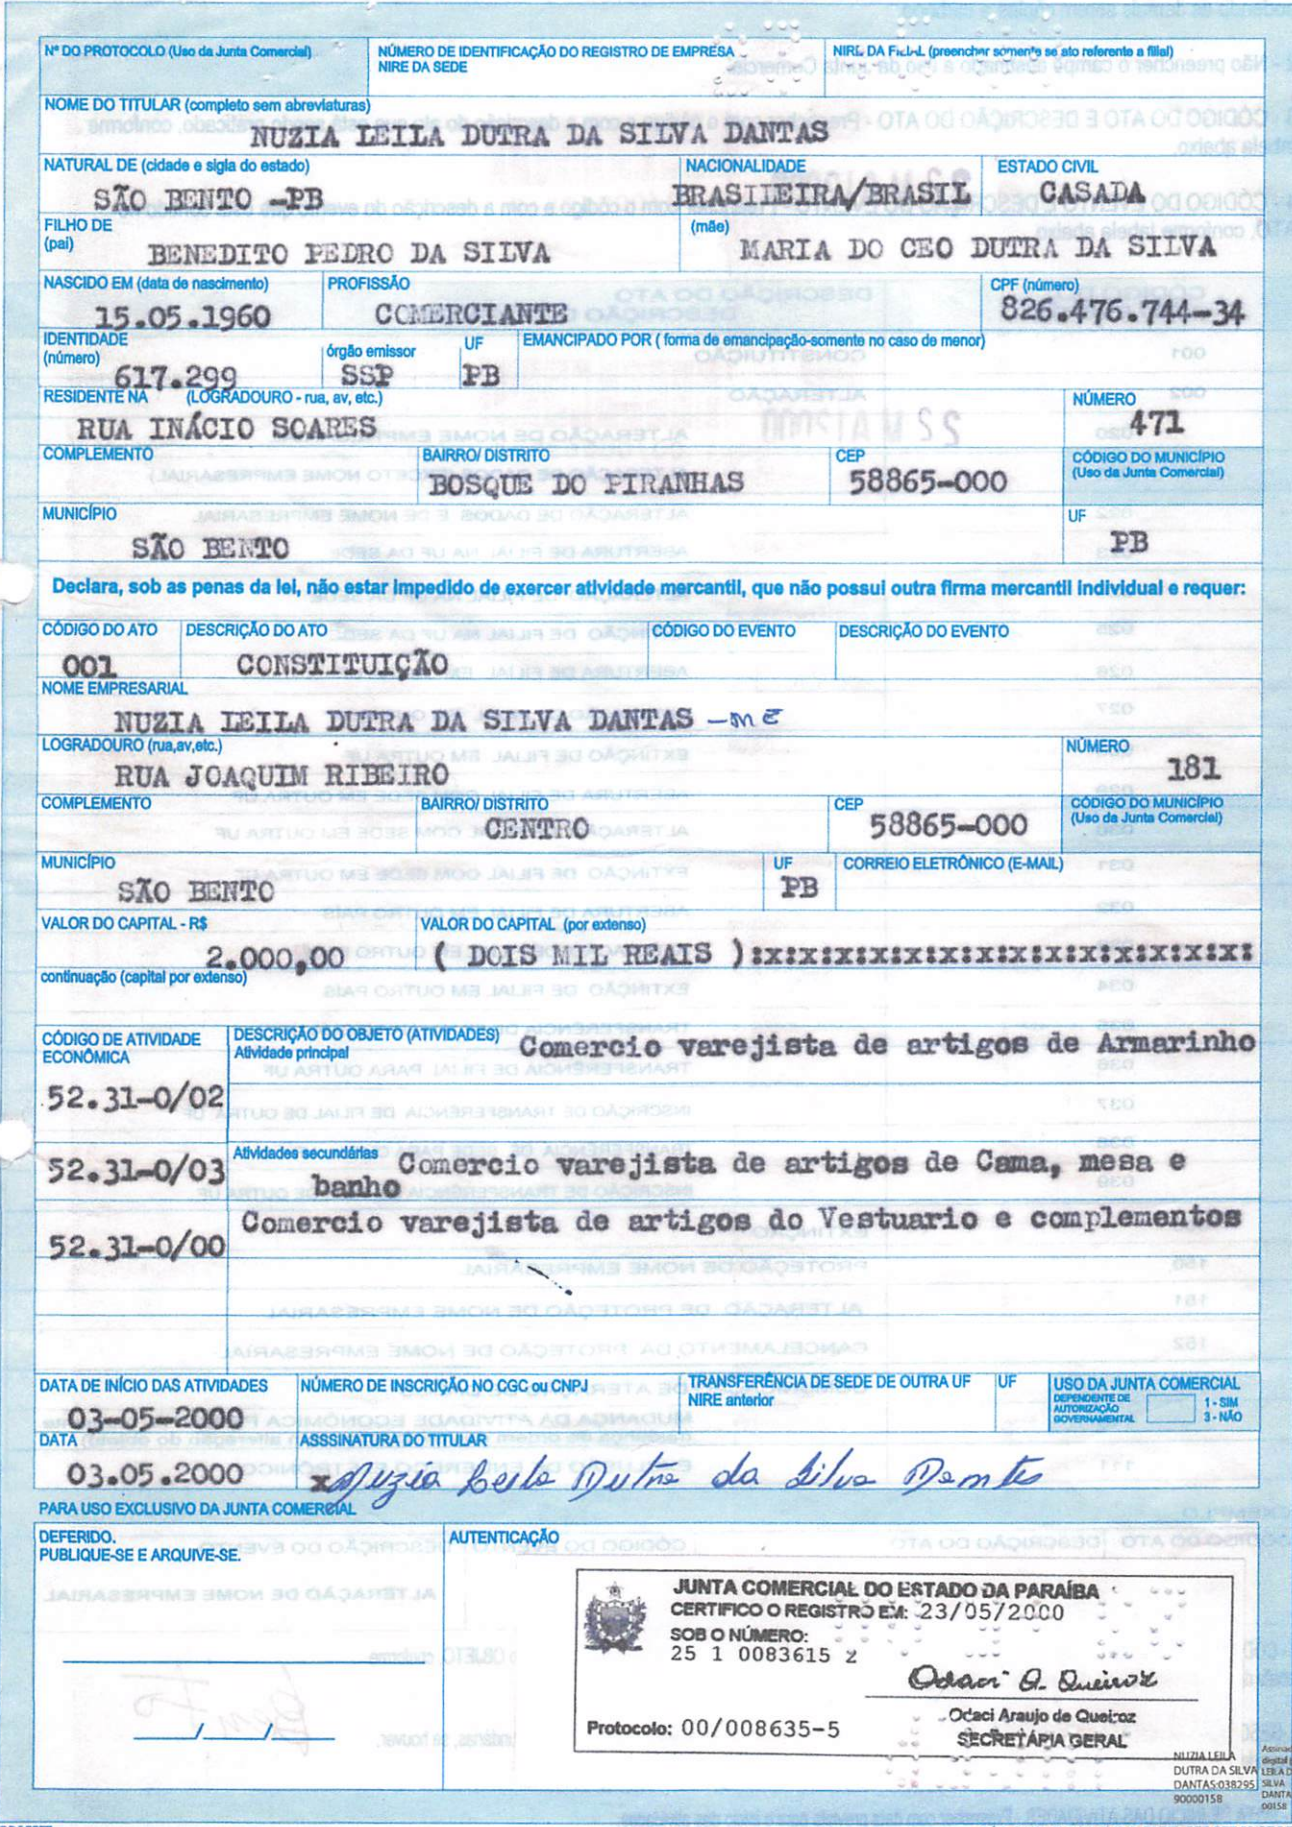 Nº DO PROTOCOLO (Uso da Junta Comercial)
NÚMERO DE IDENTIFICAÇÃO DO REGISTRO DE EMPRESA
NIRE DA SEDE
NIRE DA FILIAL (preencher somente se ato referente a filial)
NOME DO TITULAR (completo sem abreviaturas)
NUZIA LEILA DUTRA DA SILVA DANTAS
NATURAL DE (cidade e sigla do estado)
NACIONALIDADE
ESTADO CIVIL
SÃO BENTO -PB
BRASILEIRA/BRASIL
CASADA
FILHO DE
(pai)
(mãe)
BENEDITO PEDRO DA SILVA
MARIA DO CEO DUTRA DA SILVA
NASCIDO EM (data de nascimento)
PROFISSÃO
CPF (número)
15.05.1960
COMERCIANTE
826.476.744-34
IDENTIDADE
(número)
órgão emissor
UF
EMANCIPADO POR ( forma de emancipação-somente no caso de menor)
617.299
SSP
PB
RESIDENTE NA (LOGRADOURO - rua, av, etc.)
NÚMERO
RUA INÁCIO SOARES
471
COMPLEMENTO
BAIRRO/ DISTRITO
CEP
CÓDIGO DO MUNICÍPIO
(Uso da Junta Comercial)
BOSQUE DO PIRANHAS
58865-000
MUNICÍPIO
UF
SÃO BENTO
PB
Declara, sob as penas da lei, não estar impedido de exercer atividade mercantil, que não possui outra firma mercantil individual e requer:
CÓDIGO DO ATO
DESCRIÇÃO DO ATO
CÓDIGO DO EVENTO
DESCRIÇÃO DO EVENTO
001
CONSTITUIÇÃO
NOME EMPRESARIAL
NUZIA LEILA DUTRA DA SILVA DANTAS -ME
LOGRADOURO (rua,av,etc.)
NÚMERO
RUA JOAQUIM RIBEIRO
181
COMPLEMENTO
BAIRRO/ DISTRITO
CEP
CÓDIGO DO MUNICÍPIO
(Uso da Junta Comercial)
CENTRO
58865-000
MUNICÍPIO
UF
CORREIO ELETRÔNICO (E-MAIL)
SÃO BENTO
PB
VALOR DO CAPITAL - R$
VALOR DO CAPITAL (por extenso)
2.000,00
( DOIS MIL REAIS ):x:x:x:x:x:x:x:x:x:x:x:x:x:
continuação (capital por extenso)
CÓDIGO DE ATIVIDADE
ECONÔMICA
DESCRIÇÃO DO OBJETO (ATIVIDADES)
Atividade principal
Comercio varejista de artigos de Armarinho
52.31-0/02
Atividades secundárias
Comercio varejista de artigos de Cama, mesa e
52.31-0/03
banho
Comercio varejista de artigos do Vestuario e complementos
52.31-0/00
DATA DE INÍCIO DAS ATIVIDADES
NÚMERO DE INSCRIÇÃO NO CGC ou CNPJ
TRANSFERÊNCIA DE SEDE DE OUTRA UF
NIRE anterior
UF
USO DA JUNTA COMERCIAL
DEPENDENTE DE
AUTORIZAÇÃO
GOVERNAMENTAL
1 - SIM
3 - NÃO
03-05-2000
DATA
ASSSINATURA DO TITULAR
03.05.2000
x Nuzia Leila Dutra da Silva Dantas
PARA USO EXCLUSIVO DA JUNTA COMERCIAL
DEFERIDO.
PUBLIQUE-SE E ARQUIVE-SE.
AUTENTICAÇÃO
JUNTA COMERCIAL DO ESTADO DA PARAÍBA
CERTIFICO O REGISTRO EM: 23/05/2000
SOB O NÚMERO:
25 1 0083615 2
Odaci A. Queiroz
Odaci Araujo de Queiroz
SECRETÁRIA GERAL
Protocolo: 00/008635-5
NUZIA LEILA
DUTRA DA SILVA
DANTAS:038295
90000158